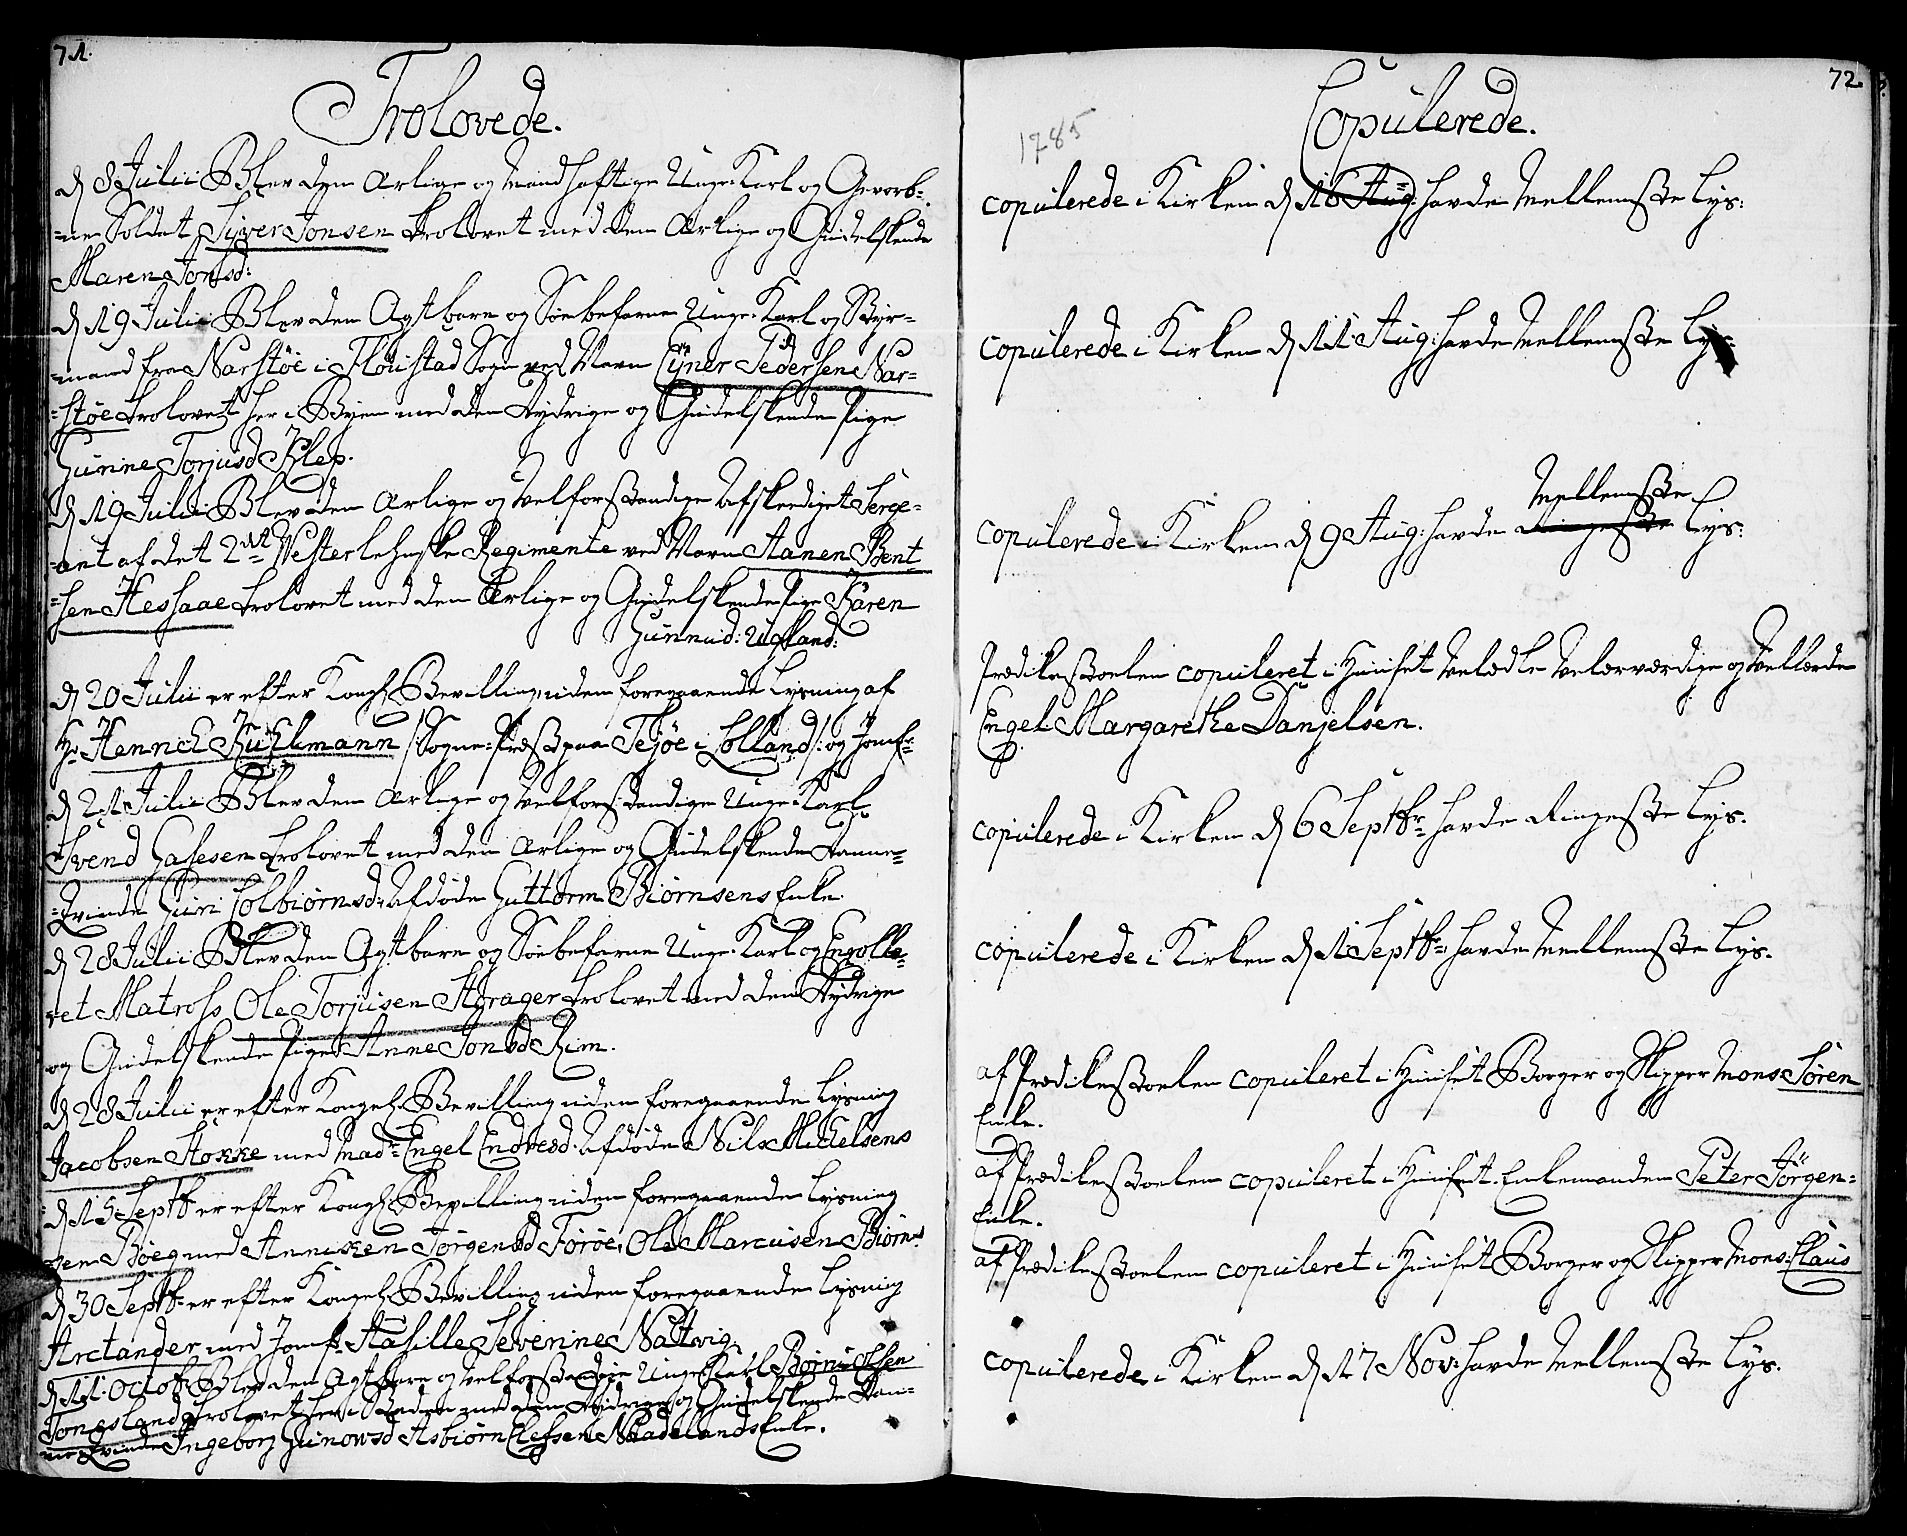 71.
Trolovede.
d 8 Julii Blev den Ærlige og Mandhaftige Unge Karl og Gevorb-
-ne Soldet Siver Jonsen trolovet med den Ærlige og Gudelskende
Maren Jonsd:
d 19 Julii Blev den Agtbare og Søebefarne Unge Karl og Styr-
-mand fra Narstöe i Flöustad Sogn ved Navn Eyner Pedersen Nar-
-stöe trolovet her i Byen med den Dydrige og Gudelskende Pige
Gunne Torjusd Klep.
d 19 Julii Blev den Ærlige og Velforstandige Afskediget Serge-
-ant af det 2det Vesterlehnske Regimente ved Navn Aanen Bent-
-sen Hessaae trolovet med den Ærlige og Gudelskende Pige Karen
Gunnud: Ufland:
d 20 Julii er efter Kongl Bevilling uden foregaaende Lysning af
Hr Henrich Kuhlmann /: Sogne-Præst paa Fejöe i Lolland :/ og Jomfr
d 21 Julii Blev den Ærlige og Velforstandige Unge Karl
Svend Gasesen trolovet med den Ærlige og Gudelskende Danne-
-Qvinde Guri Colbiörnsd: Afdöde Guttorm Biörnsens Enke
d 28 Julii Blev den Agtbare og Söebefarne Unge Karl og Enrolle-
-ret Matross Ole Torjusen Störager trolovet med den Dydrige
og Gudelskende Pige Anne Jonsd Rim.
d 28 Julii er efter Kongel Bevilling uden foregaaende Lysning
Jacobsen Stokke med Mad: Engel Endresd: Afdöde Nils Michelsens
d 15 Septbr er efter Kongl Bevilling uden foregaaende Lysning
-sen Böeg med Anniken Jörgensd Foröe, Ole Marcusen Biörns
d 30 Septbr er efter Kongel Bevilling uden foregaaende Lysning
Arctander med Jomfr Hasille Severine Nattvig.
d 11 Octob Blev den Agtbare og Velforstandige Unge Karl Börni Olsen
Tongsland trolovet her i Staden med den Dydrige og Gudelskende Dan-
-ne Qvinde Ingeborg Gunowsd Asbiörn Elefsen Naadelands Enke.
72
Copulerede.
1785
copulerede i Kirken d 16 Aug: havde Mellemste Lys:
copulerede i Kirken d 11 Aug: havde Mellemste Lys:
Mellemste
copulerede i Kirken d 9 Aug: havde Ringeste Lys:
Prædikestoelen copuleret i Huuset Velædle Velærværdige og Vellærde
Engel Margarethe Danjelsen.
copulerede i Kirken d 6 Septbr havde Ringeste Lys.
copulerede i Kirken d 1 Septbr havde Mellemste Lys.
af Prædikestoelen copuleret i Huuset Borger og Skipper Mons: Sören
Enke.
af Prædikestoelen copuleret i Huuset Enkemanden Peter Jörgen-
Enke.
af Prædikestoelen copuleret i Huuset Borger og Skipper Mons: Claus
copulerede i Kirken d 17 Nov: havde Mellemste Lys.